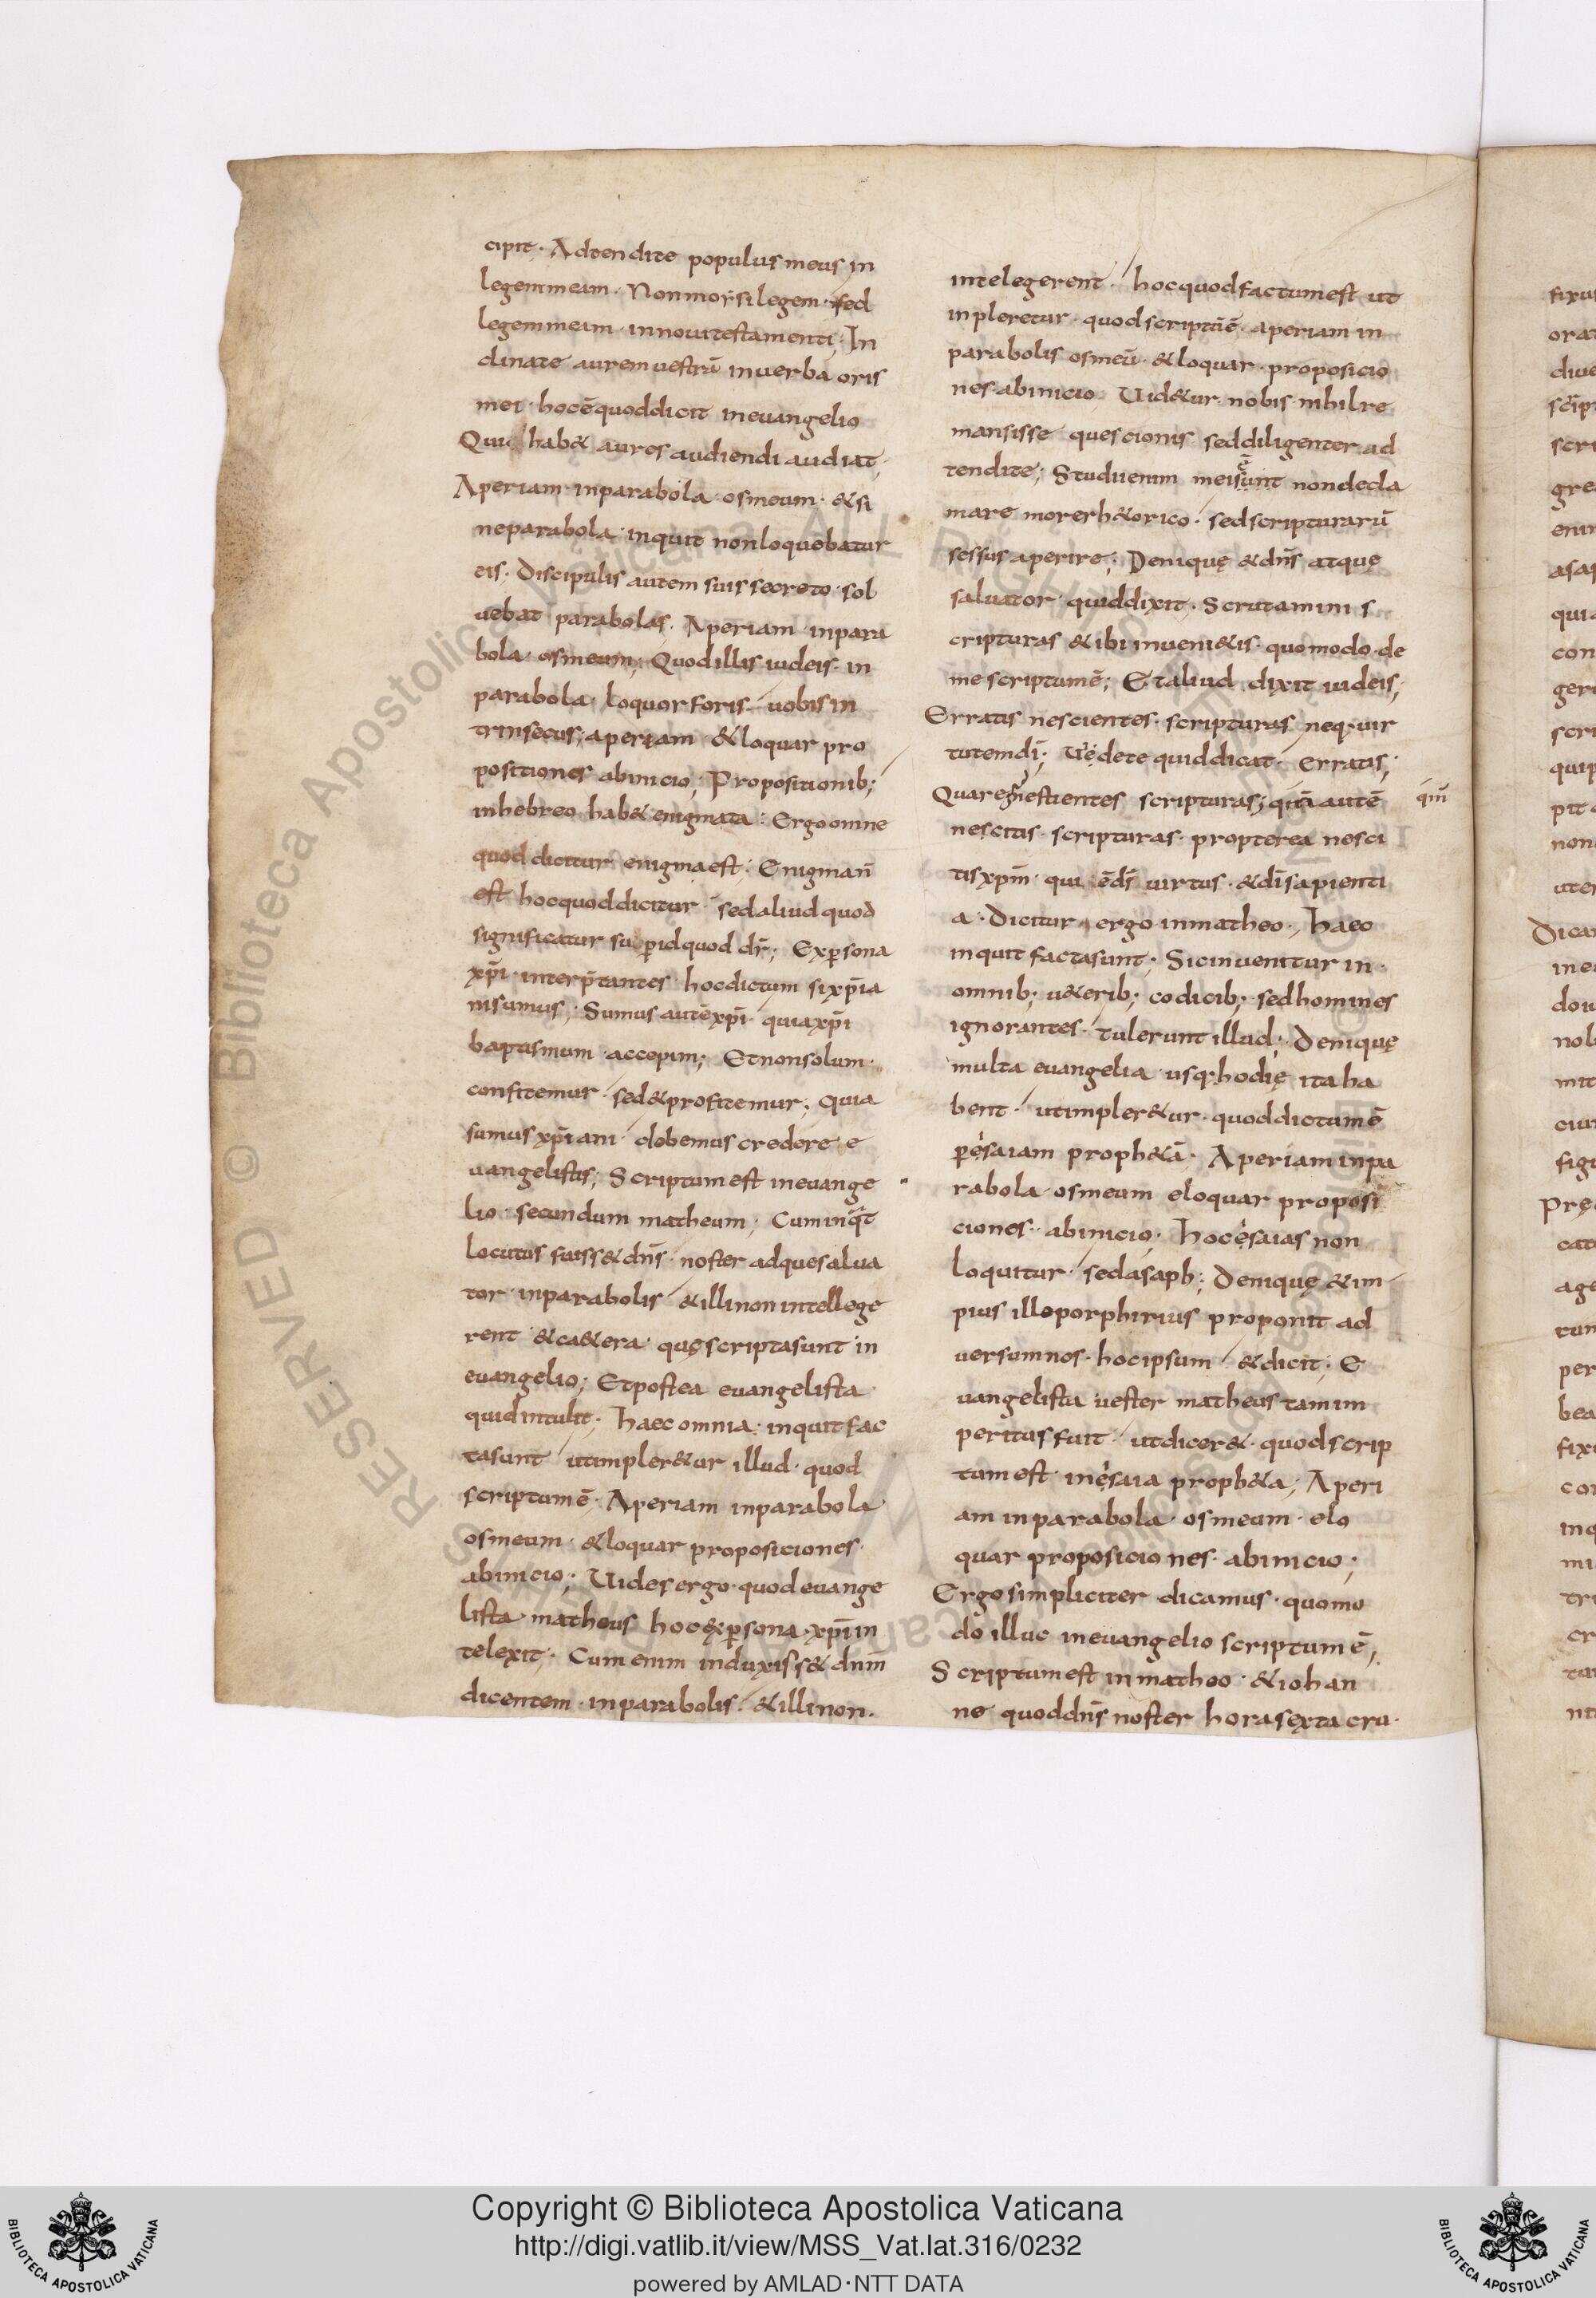 cipit · Adtendite populus meus in
legem meam · Non moysi legem · sed
legem meam · in noui testamenti ; In
clinate aurem uestrū in uerba oris
mei · hoc ē quod dicit in euangelio
Qui hab& aures audiendi audiat ;
Aperiam · in parabola · os meum · & si
ne parabola inquit non loquebatur
eis ; Discipulis autem suis secreto · sol
uebat parabolas · Aperiam in para
bola os meum ; Quod illis iudeis · in
parabola · loquor foris · uobis in
trinsecus ; aperiam & loquar pro
positiones ab inicio ; Propositionib;
in hebreo hab& enigmata : Ergo omne
quod dicitur enigma est ; Enigma n̄
est hoc quod dicitur · sed aliud quod
significatur sup̄ id quod dr̄ ; Ex p̄sona
xp̄i · interp̄tantes · hoc dictum si xp̄ia
ni sumus ; Sumus autē xp̄i · quia xp̄i
baptismum accepim; Et non solum ·
confitemur · sed & profitemur ; quia
sumus xp̄iani · debemus credere e
uangelistis ; Scriptum est in euange
lio · secundum matheum ; Cum inq̄t
locutus fuiss& dn̄s · noster adque salua
tor in parabolis & illi non intellege
rent & ca&era · quę scripta sunt in
euangelio ; Et postea euangelista
quid intulit ; haec omnia · inquit fac
ta sunt ut impler&ur illud · quod
scriptum ē · Aperiam in parabola ·
os meum · & loquar proposiciones ·
ab inicio ; Uides ergo · quod euange
lista · matheus hoc ex p̄sona · xp̄i in
telexit ; Cum enim induxiss& dnm̄
dicentem · in parabolis · & illi non ·
intelegerent · hoc quod factum est ut
inpleretur · quod scriptū ē · aperiam in
parabolis os meū · & loquar · proposicio
nes · ab inicio Uid&ur nobis nihil re
mansisse quescionis sed diligenter ad
tendite ; Studii enim mei sunt non decla
ē
mare more rh&orico · sed scripturarū
sessus aperire ; Deniquę & dn̄s atquę
saluator · quid dixit · Scrutamini s
cripturas & ibi inueni&is · quomodo · de
me scriptum ē ; Et aliud dixit iudeis ;
Erratis nescientes · scripturas neq· uir
tutem dī ; Uędete quid dicat · erratis ;
scripturas ; quia autē
qm̄
nescitis · scripturas · propterea nesci
tis xpm̄ · qui ē dī uirtus · & dī sapienti
a · Dicitur ergo in matheo · haec
inquit facta sunt ; Sic inuenitur in ·
omnib; u&erib; codicib; sed homines
ignorantes · tulerunt illud ; Deniquę
multa euangelia usq· hodię ita ha
bent · ut impler&ur · quod dictum ē
p̄ ęsaiam proph&ā · Aperiam in pa
rabola · os meum eloquar proposi
ciones · ab inicio ; hoc ęsaias non
loquitur · sed asaph ; Deniquę & im
pius ille porphirius proponit ad
uersum nos · hoc ipsum & dicit ; E
uangelista uester matheus tam im
peritus fuit ut dicer& · quod scrip
tum est · in ęsaia proph&a ; Aperi
am in parabola · os meum · elo
quar proposiciones · ab inicio ;
Ergo simpliciter dicamus · quomo
do illuc in euangelio scriptum ē ;
Scriptum est in matheo · & iohan
ne quod dn̄s noster hora sexta cru ·
Copyright © Biblioteca Apostolica Vaticana
http://digi.vatlib.it/view/MSS_Vat.lat.316/0232
powered by AMLAD·NTT DATA
BIBLIOTECA APOSTOLICA VATICANA
BIBLIOTECA APOSTOLICA VATICANA